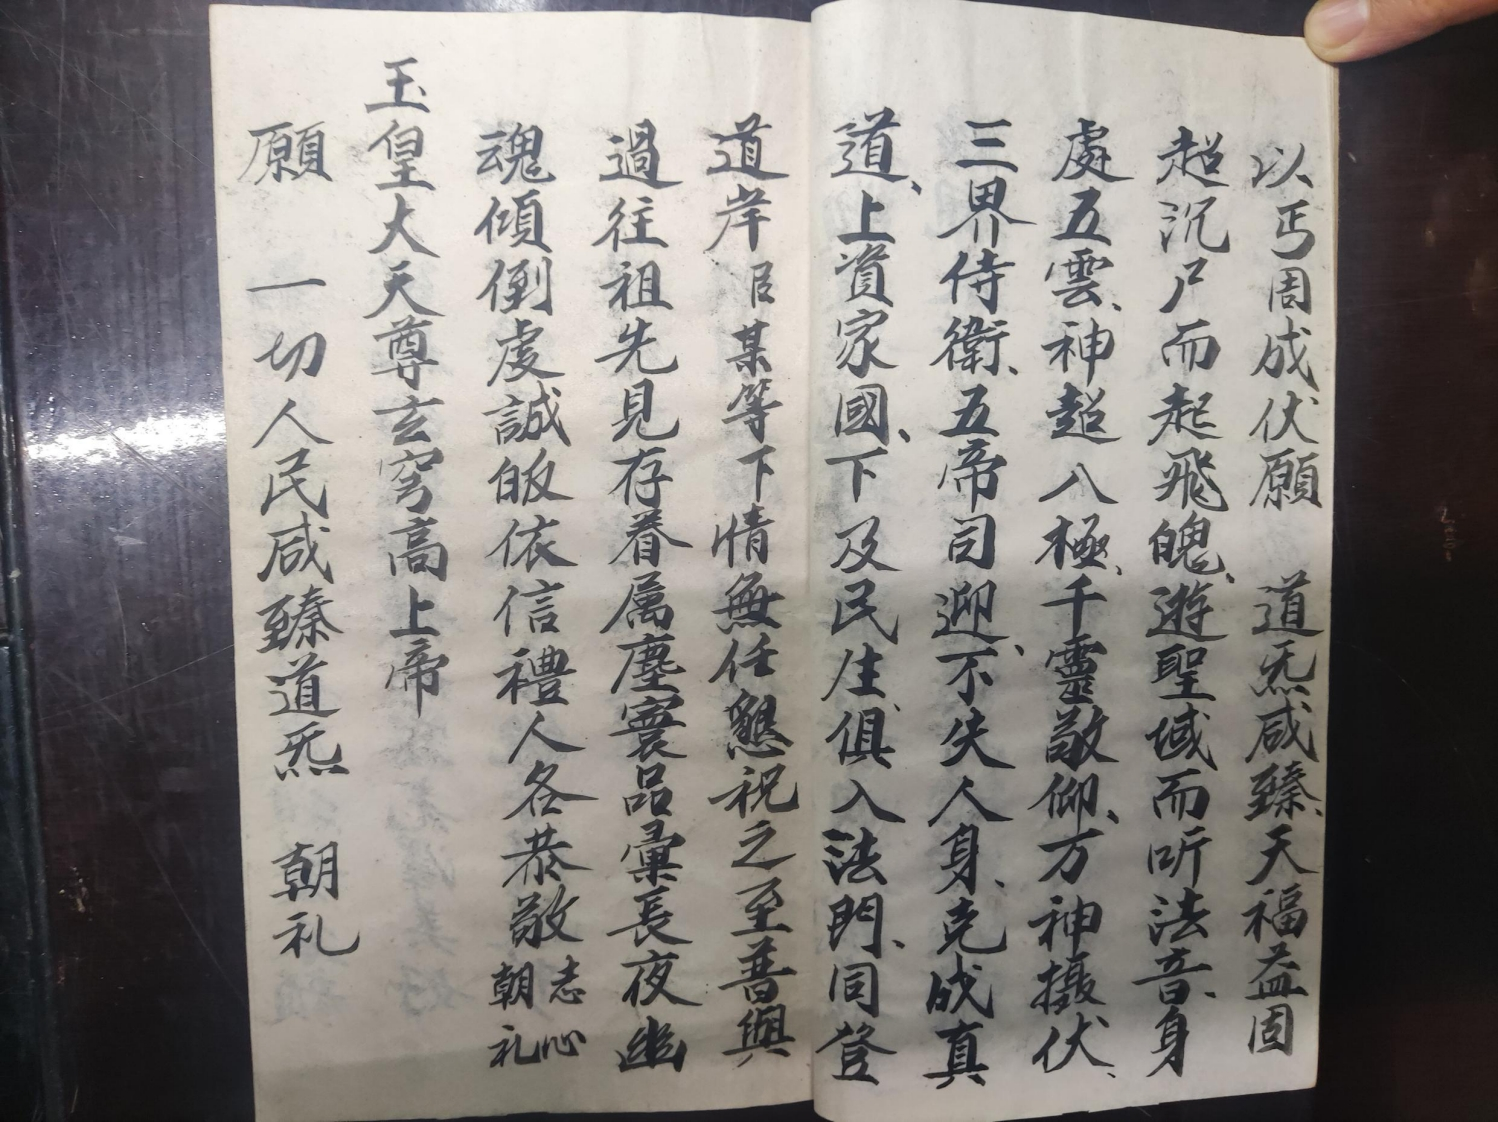 以丐周成伏願　道炁咸臻、天福益固
超沉尸而起飛魄、遊聖域而听法音、身
處五雲、神超八極、千靈敬仰、万神攝伏、
三界侍衛、五帝司迎、不失人身、克成真
道、上資家國、下及民生、俱入法門、同登
道岸臣某等下情無任懇祝之至普與
過往祖先見存眷属塵寰品彙長夜幽
魂傾倒虔誠皈依信禮人各恭敬志心朝礼
玉皇大天尊玄穹高上帝
願　一切人民咸臻道炁　朝礼